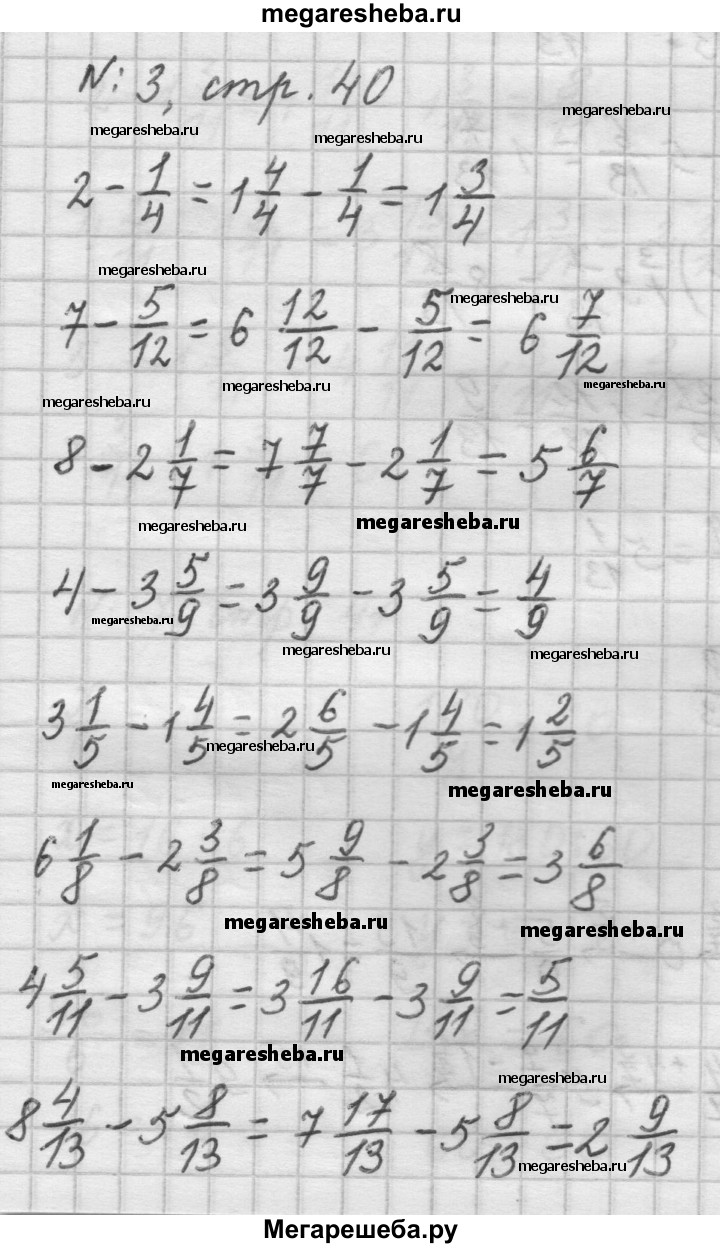 megaresheba.ru
№ 3, стр. 40
megaresheba.ru
megaresheba.ru megaresheba.ru
2 - 1/4 = 1 4/4 - 1/4 = 1 3/4
megaresheba.ru
megaresheba.ru
7 - 5/12 = 6 12/12 - 5/12 = 6 7/12
megaresheba.ru megaresheba.ru
megaresheba.ru
8 - 2 1/7 = 7 7/7 - 2 1/7 = 5 6/7
megaresheba.ru megaresheba.ru
4 - 3 5/9 = 3 9/9 - 3 5/9 = 4/9
megaresheba.ru
megaresheba.ru megaresheba.ru
3 1/5 - 1 4/5 = 2 6/5 - 1 4/5 = 1 2/5
megaresheba.ru
megaresheba.ru megaresheba.ru
6 1/8 - 2 3/8 = 5 9/8 - 2 3/8 = 3 6/8
megaresheba.ru megaresheba.ru
4 5/11 - 3 9/11 = 3 16/11 - 3 9/11 = 5/11
megaresheba.ru
megaresheba.ru
8 4/13 - 5 8/13 = 7 17/13 - 5 8/13 = 2 9/13
megaresheba.ru
Мегарешеба.ру